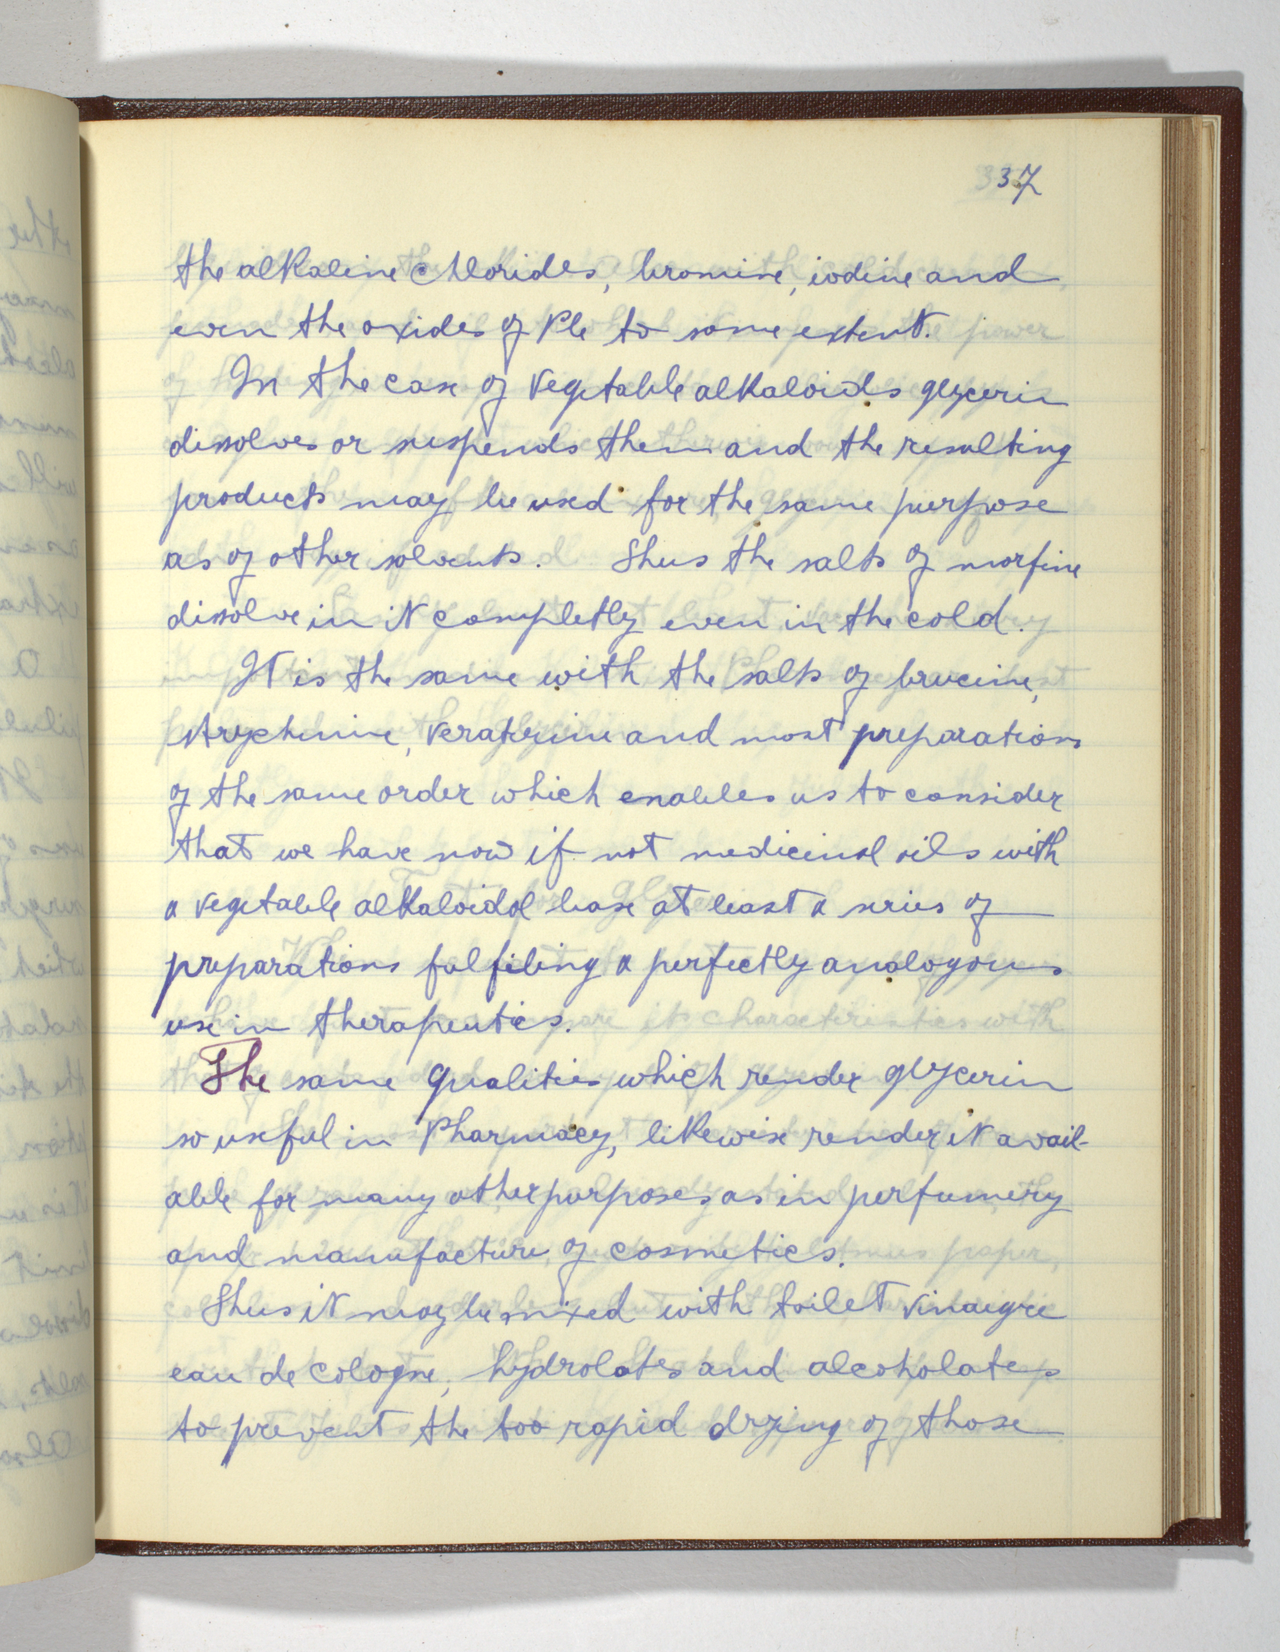 337
the alkaline chlorides, bromine, iodine and
even the oxides of Pb to some extent.
In the case of vegetable alkaloids glycerin
dissolves or suspends them and the resulting
products may be used for the same purpose
as of other solvents. Thus the salts of morfine
dissolve in it completly even in the cold.
It is the same with the salts of brucine,
strychnine, veratrine and most preparations
of the same order which enables us to consider
that we have now if not medicinal oils with
a vegetable alkaloidal base at least a series of
preparations fulfiling a perfectly analogous
use in therapeutics.
The same qualities which render glycerin
so useful in Pharmacy, likewise render it avail-
able for many other purposes as in perfumery
and manufacture of cosmetics.
Thus it may be mixed with toilet vinaigre
eau de cologne, hydrolates and alcoholates
to prevent the too rapid drying of those